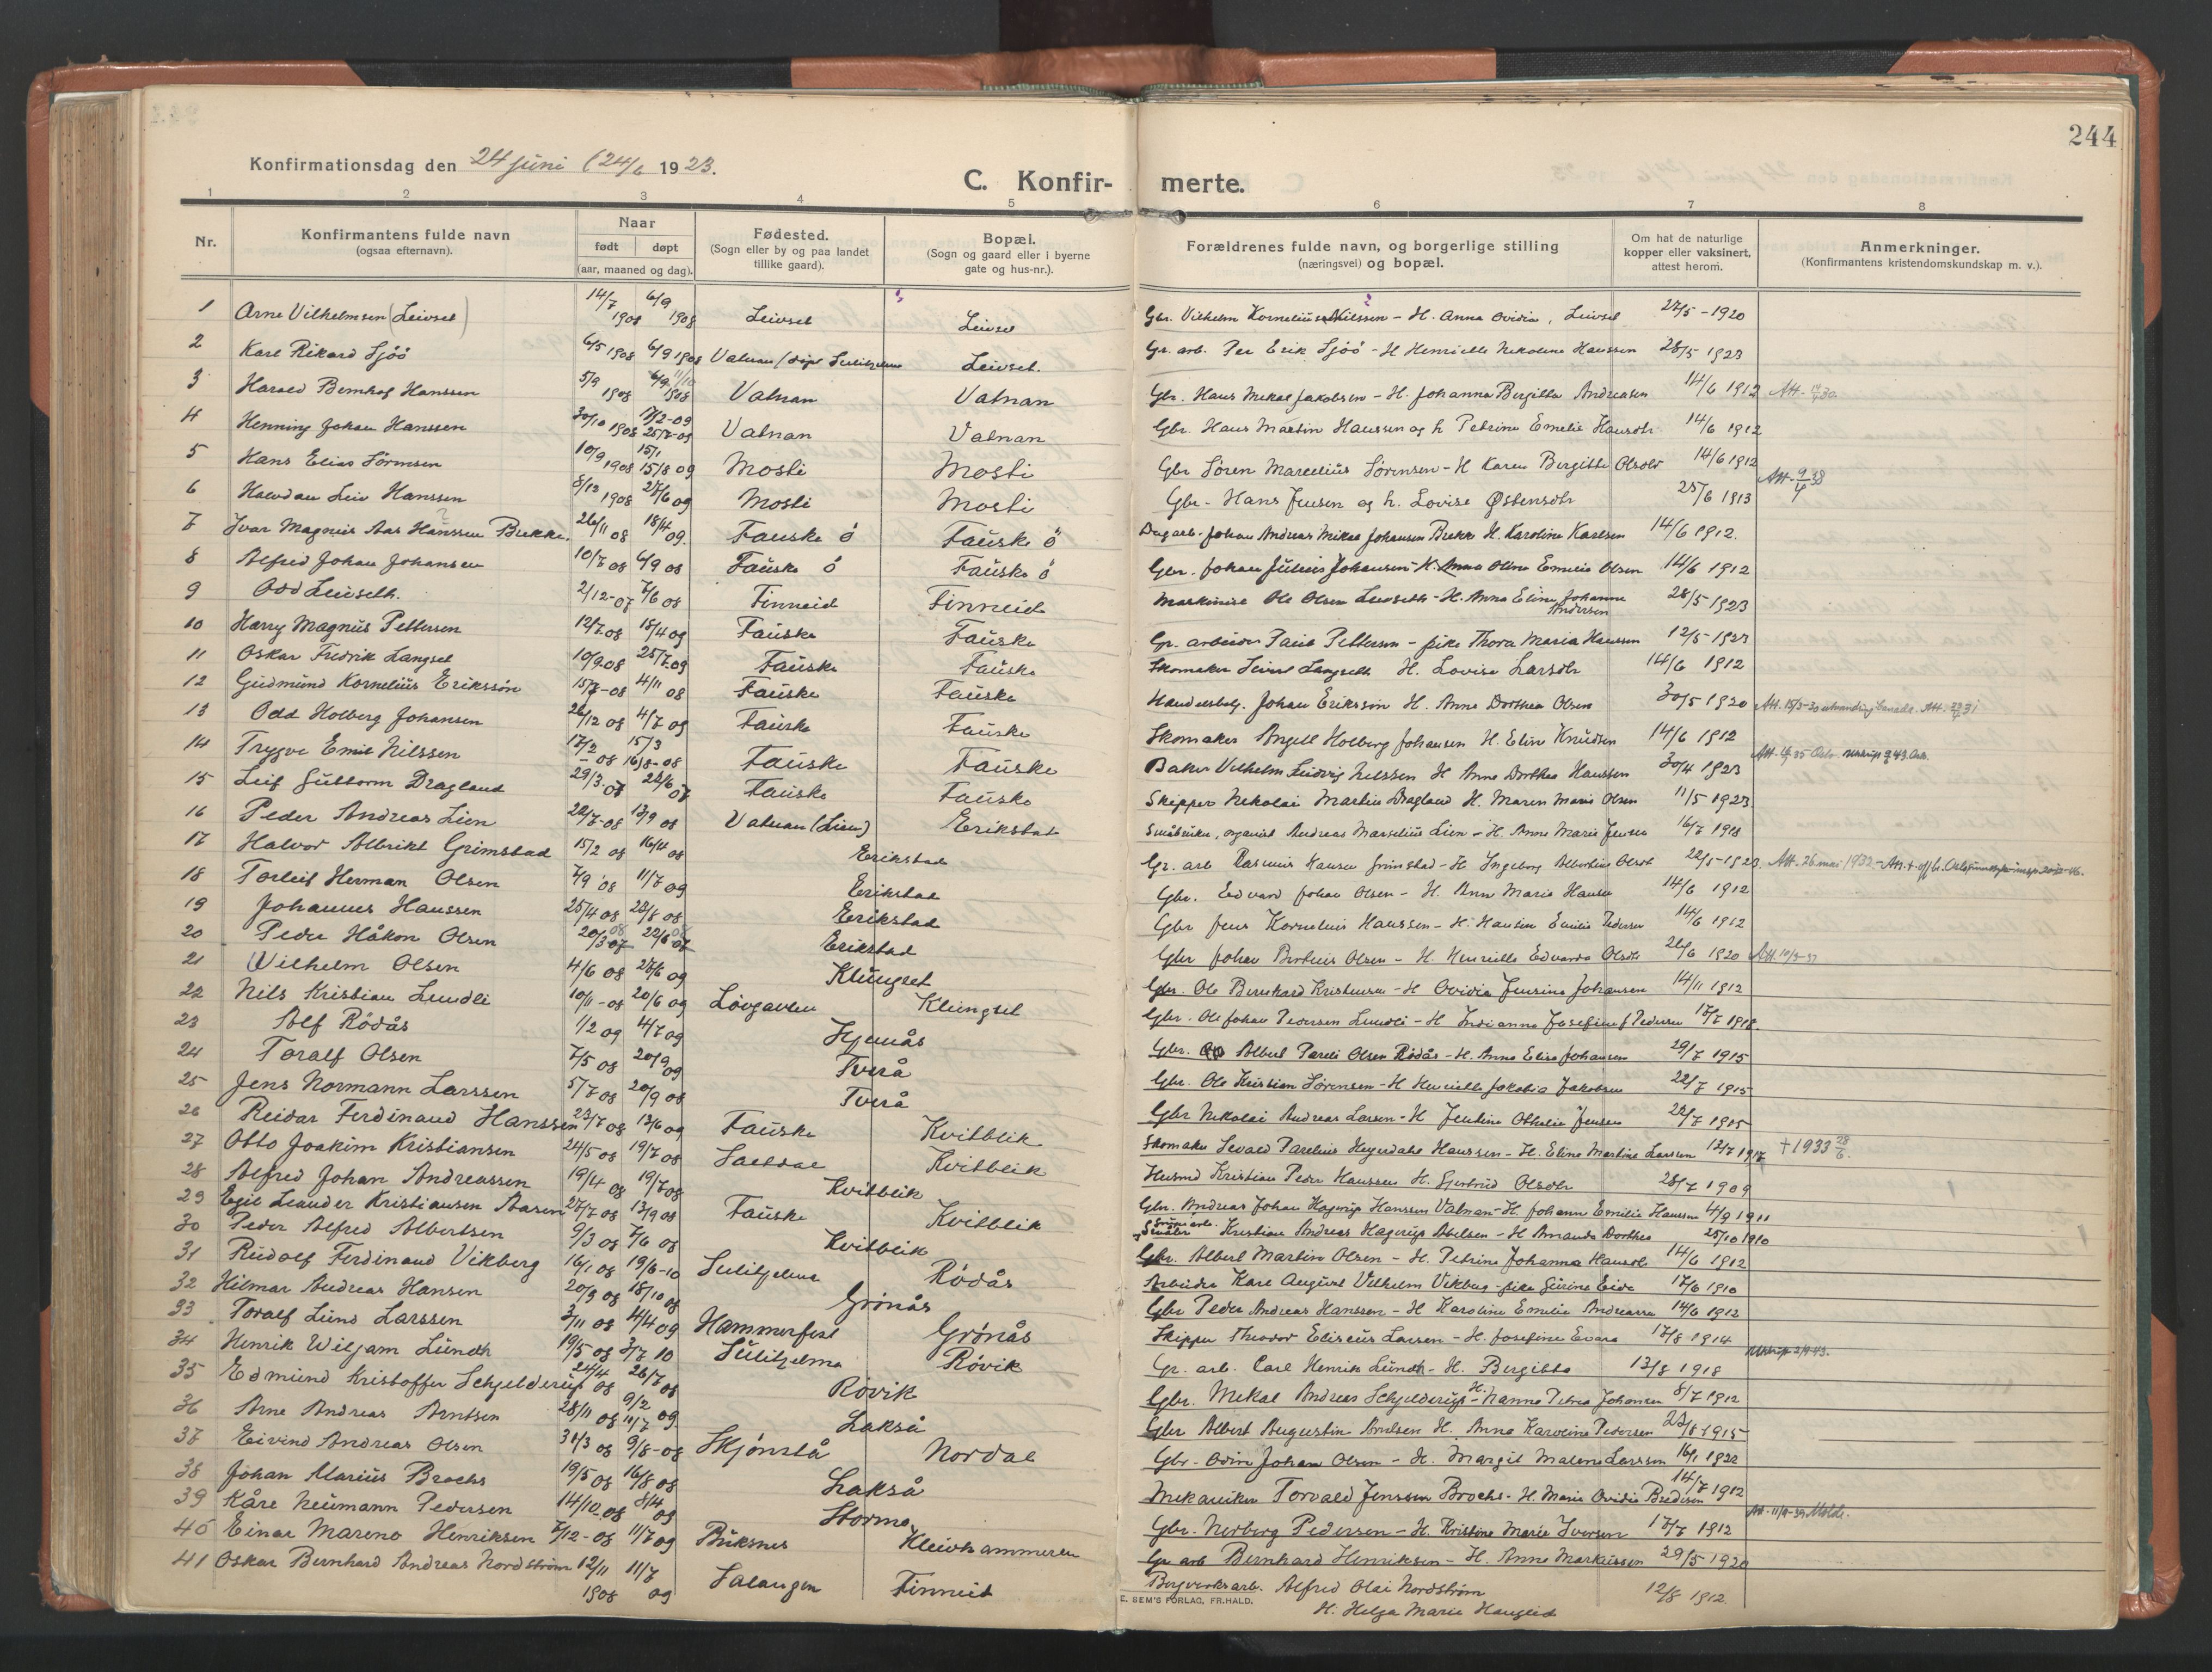 244
Konfirmationsdag den 24 juni (24/6 1923.
C. Konfir- merte.
1 2 3 4 5 6 7 8
Nr. Konfirmantens fulde navn (ogsaa efternavn). Naar født døpt (aar, maaned og dag). Fødested. (Sogn eller by og paa landet tillike gaard). Bopæl. (Sogn og gaard eller i byerne gate og hus-nr.). Forældrenes fulde navn, og borgerlige stilling (næringsvei) og bopæl. Om hat de naturlige kopper eller vaksinert, attest herom. Anmerkninger. (Konfirmantens kristendomskundskap m. v.).
1 Arne Vilhelmsen (Leivset) 14/7 1908 6/9 1908 Leivset Leivset Gbr. Vilhelm Kornelius Nilssen - H. Anna Ovidia, Leivset 27/5-1920
2 Karl Rikard Sjöö 6/5 1908 6/9 1908 Valnan Leivset. Gr. arb. Per Erik Sjöö - H Henriette Nekoline Hanssen 28/5 1923
3 Harald Bernhof Hanssen 5/9 1908 6/9 1908 Valnan Valnan Gbr. Hans Mekal Jakobsen - H. Johanna Bergitta Andreasen 14/6 1912
4 Henning Johan Hanssen 30/10 1908 17/2-09 25/7-09 Valnan Valnan Gbr. Hans Martin Hanssen og h Petrine Emelie Hansdtr 14/6 1912
5 Hans Elias Sörensen 10/9 1908 15/1 15/8 09 Mosti Mosti Gbr Sören Marcelius Sörensen - H Karen Bergitte Olsdtr 14/6 1912
6 Halvdan Leiv Hanssen 8/12 1908 27/6 09 Mosti Mosti Gbr - Hans Jensen og h. Lovise Østensdtr 25/6 1913
7 Ivar Magnus Aas Hanssen Brekke. 26/11 08 18/4 09. Fauske ö Fauske ö Dagarb. Johan Andreas Mikal Johansen Brekke H. Karoline Karlsen 14/6 1912.
8 Alfred Johan Johansen 10/7 08 6/9 08 Fauske ö Fauske ö Gbr. Johan Julius Johansen - H. Anna Oline Emelie Olsen 14/6 1912
9 Odd Leivseth. 2/12-07 7/6 08 Finneid Finneid Maskinist Ole Olsen Leivseth - H. Anna Eline Johanne Andersen 28/5 1923
10 Harry Magnus Pettersen 12/7-08 18/4 09 Fauske Fauske Gr. arbeider Paul Pettersen - pike Thora Maria Hanssen 12/5-1923
11 Oskar Fredrik Langset 10/9-08 25/7-09 Fauske Fauske Skomaker Sivert Langseth H. Lovise Larsdtr 14/6 1912
12 Gudmund Kornelius Eriksson 15/7-08 4/11 08 Fauske Fauske Handelsbetj. Johan Eriksson H. Anne Dorthea Olsen 30/5 1920
13 Odd Holberg Johansen 26/12 08 4/7 09 Fauske Fauske Skomaker Angell Holberg Johansen H. Eline Knudsen 14/6 1912
14 Trygve Emil Nilssen 17/2-08 15/3 16/8-08 Fauske Fauske Baker Vilhelm Ludvig Nilssen H Anne Dorthea Hanssen 30/4 1923
15 Leif Guttorm Dragland 29/3-07 22/6 07 Fauske Fauske Skipper Nekolai Martin Dragland H. Maren Marie Olsen 11/5 1923
16 Peder Andreas Lien 22/7-08 13/9 08 Valnan (Lien) Erikstad Småbruker, organist Andreas Marselius Lien - H. Anne Marie Jensen 16/7 1918
17 Halvor Albrikt Grimstad 15/2 08 16/4 08 Erikstad Gr. arb Rasmus Hansen Grimstad - H Ingeborg Albertine Olsdtr 22/5-1923 Att. 26 mai 1932
18 Torleif Herman Olsen 7/9 08 11/7 09 Erikstad Gbr. Edvard Johan Olsen - H. Ann Maria Hansen 14/6 1912
19 Johannes Hanssen 25/4 08 23/8 08 Erikstad Gbr Jens Kornelius Hanssen - H. Hansine Emilie Pedersen 14/6 1912
20 Peder Håkon Olsen 20/3 08 22/6 08 Erikstad Gbr Johan Broteus Olsen - H. Henriette Edvarda Olsdtr 26/6 1920
21 Vilhelm Olsen 4/6 08 27/6 09 Klungset Gbr. Ole Bernhard Kristensen - H Ovidia Jensine Johansen 14/11 1912
22 Nils Kristian Lundli 10/11-08 20/6 09 Lövgavlen Klungset Gbr. Ole Johan Pedersen Lundli - H Indianna Josefine J Pedersen 17/7 1918.
23 Alf Rödås 1/2 09 4/7 09 Hjemås Gbr. Albert Pareli Olsen Rödås - H. Anna Elisa Johansen 29/7 1915
24 Toralf Olsen 7/5 08 20/9 09 Tverå Gbr. Ole Kristian Sörensen - H Henriette Jakobia Jakobsen 22/7 1915
25 Jens Normann Larssen 5/7 08 20/9 08 Tverå Gbr Nekolai Andreas Larsen - H Jentine Othelie Jensen 22/7 1915
26 Reidar Ferdinand Hanssen 23/7 08 13/6 09 Fauske Kvitblik Skomaker Sevald Parelius Heggedahl Hanssen - H. Eline Martine Larssen 12/7 1917 † 1933 28/6.
27 Otto Joakim Kristiansen 24/5 08 19/7 08 Saltdal Kvitblik Husmd Kristian Peder Hanssen H. Gjertrud Olsdtr 28/7 1909
28 Alfred Johan Andreassen 19/4 08 19/7 08 Kvitblik Gbr. Andreas Johan Hagerup Hanssen Valnan - H. Johanne Emilie Hanssen 4/9 1911
29 Egil Leander Kristiansen Aasen 27/7 08 13/9 08 Fauske Kvitblik Småbr Kristian Andreas Hagerup Abelsen - H Amanda Dorthea 25/10 1910
30 Peder Alfred Albertsen 9/3 08 7/6 08 Kvitblik Gbr. Albert Martin Olsen - H. Petrine Johanna Hansdtr 14/6 1912
31 Rudolf Ferdinand Vikberg 16/1 08 19/6-10 Sulitjelma Rödås Arbeider Karl August Vilhelm Vikberg - pike Gurine Eide 17/6 1910
32 Hilmar Andreas Hansen 20/9 08 18/10 08 Grönås Gbr Peder Andreas Hanssen - H Karoline Emelie Andreassen 14/6 1912
33 Toralf Lund Larssen 3/11 08 4/4 09 Hammerfest Grönås Skipper Theodor Eliseus Larsen - H. Josefine Evara 17/8 1914
34 Henrik Wiljam Lundh 19/5 08 3/7 10 Sulitjelma Rövik Gr. arb. Carl Henrik Lundh - H. Bergitta 13/8 1918
35 Edmund Kristoffer Schjelderup 24/4 08 26/7 08 Rövik Gbr. Mekal Andreas Schjelderup - H. Nanna Petrea Johansen 8/7 1912
36 Arne Andreas Arntsen 28/11 08 9/2 11/7 09 Lakså Gbr Albert Augustin Arntsen H. Anna Karoline Pedersen 23/8 1915
37 Eivind Andreas Olsen 31/3 08 9/8-08 Skjönstå Nordal Gbr. Odin Johan Olsen - H. Margit Malene Larssen 16/1 1922
38 Johan Marius Brochs 19/5 08 16/8 08 Lakså Mekaniker Torvald Jenssen Brochs - H. Marie Ovidia Bredesen 14/7 1912
39 Kåre Neumann Pedersen 14/10-08 8/4 09 Stormo Gbr. Nerberg Pedersen - H. Kristine Marie Iversen 17/7 1912
40 Einar Mareno Henriksen 7/12-08 11/7 09 Buksnes Kleivhammeren Gr arb Bernhard Henriksen - H. Anne Markussen 29/5 1920
41 Oskar Bernhard Andreas Nordström 12/11 1908 11/7 09 Salangen Finneid Bergverksarb. Alfred Olai Nordström 12/8 1912.
H. Helga Marie Hauglid
E. SEM'S FORLAG, FR.HALD.